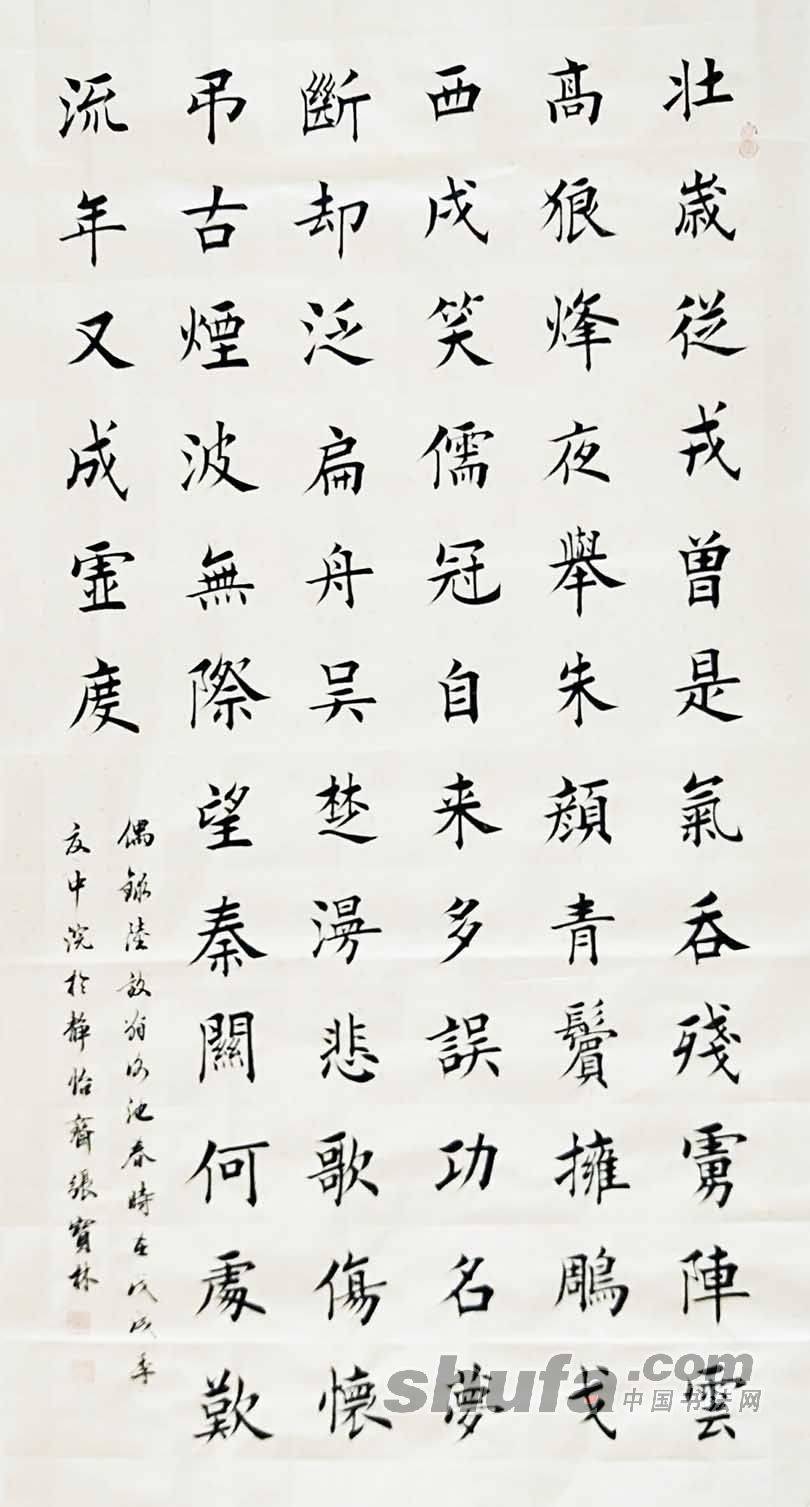 壯歲從戎曾是氣吞殘虜陣雲
高狼烽夜舉朱顔青鬢擁雕戈
西戍笑儒冠自来多誤功名夢
斷却泛扁舟吳楚漫悲歌傷懷
弔古煙波無際望秦關何處歎
流年又成虛度
偶錄陸放翁
池春時在戊戌季
夏中浣於靜怡齋張寶林
shufa.com
中国书法网